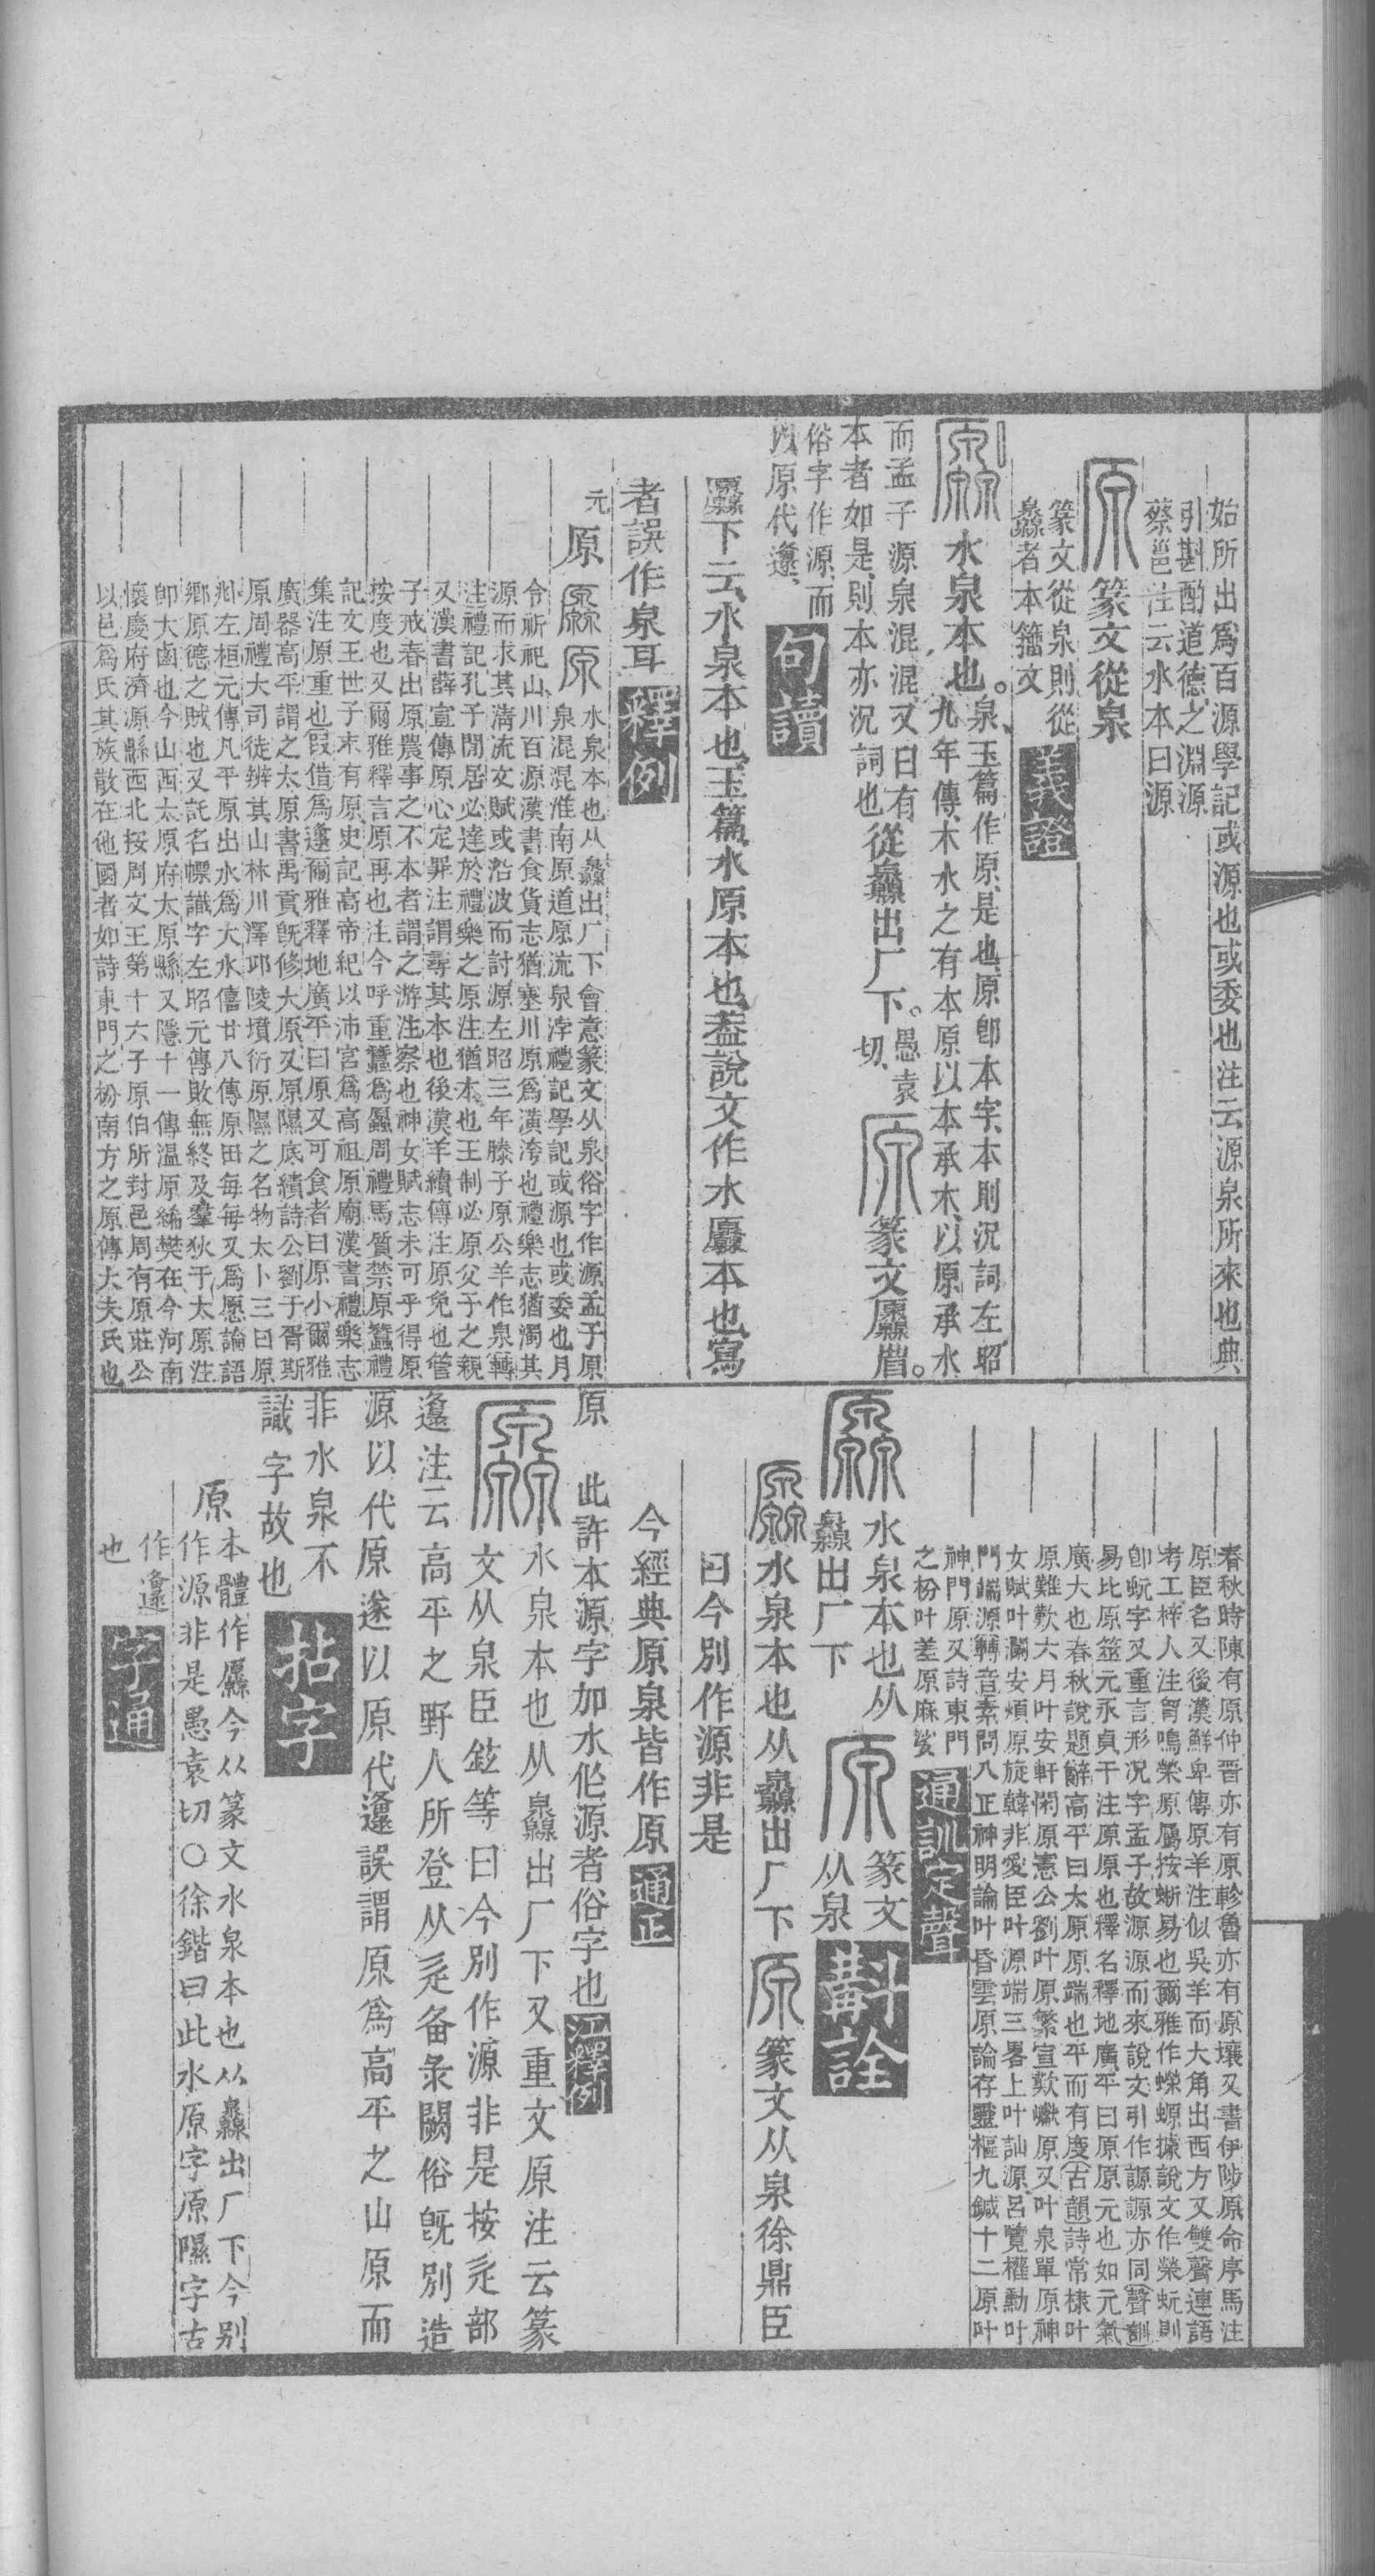 始所出爲百源學記或源也或委也注云源泉所來也典
引斟酌道德之淵源
蔡邕注云水本曰源
原篆文從泉
篆文從泉則從
灥者本籀文
義證
厵水泉本也。泉、玉篇作原、是也、原卽本字、本則況詞、左昭
九年傳、木水之有本原、以本承木、以原承水
而孟子源泉混混、又曰有
本者如是、則本亦況詞也
從灥出厂下。愚袁
切、
原篆文厵省。
俗字作源、而
以原代邍、
句讀
厵下云、水泉本也、玉篇、水原本也、葢說文作水厵本也、寫
者誤作泉耳
釋例
元
原
厵原
水泉本也从灥出厂下會意篆文从泉俗字作源孟子原
泉混混淮南原道原流泉浡禮記學記或源也或委也月
令祈祀山川百源漢書食貨志猶塞川原爲潢洿也禮樂志猶濁其
源而求其淸流文賦或沿波而討源左昭三年滕子原公羊作泉轉
注禮記孔子閒居必達於禮樂之原注猶本也王制必原父子之親
又漢書薛宣傳原心定罪注謂尋其本也後漢羊續傳注原免也管
子戒春出原農事之不本者謂之游注察也神女賦志未可乎得原
按度也又爾雅釋言原再也注今呼重蠶爲䘉周禮馬質禁原蠶禮
記文王世子末有原史記高帝紀以沛宮爲高祖原廟漢書禮樂志
集注原重也叚借爲邍爾雅釋地廣平曰原又可食者曰原小爾雅
廣器高平謂之太原書禹貢旣修大原又原隰底績詩公劉于胥斯
原周禮大司徒辨其山林川澤邱陵墳衍原隰之名物太卜三曰原
𠛱左桓元傳凡平原出水爲大水僖廿八傳原田每每又爲愿論語
鄉原德之賊也又託名幖識字左昭元傳敗無終及羣狄于太原注
卽大鹵也今山西太原府太原縣又隱十一傳温原絺樊在今河南
懷慶府濟源縣西北按周文王第十六子原伯所封邑周有原莊公
以邑爲氏其族散在他國者如詩東門之枌南方之原傳大夫氏也
春秋時陳有原仲晉亦有原軫魯亦有原壤又書伊陟原命序馬注
原臣名又後漢鮮卑傳原羊注似吳羊而大角出西方又雙聲連語
考工梓人注胷鳴榮原屬按蜥易也爾雅作蠑螈據說文作榮蚖則
卽蚖字又重言形况字孟子故源源而來說文引作謜謜亦同聲訓
易比原筮元永貞干注原原也釋名釋地廣平曰原原元也如元氣
廣大也春秋說題辭高平曰太原原端也平而有度古韻詩常棣叶
原難歎六月叶安軒閑原憲公劉叶原繁宣歎巘原又叶泉單原神
女賦叶瀾安煩原旋韓非愛臣叶源端三畧上叶訕源呂覽權勳叶
門端源轉音素問八正神明論叶昏雲原論存靈樞九鍼十二原叶
神門原又詩東門
之枌叶差原麻娑
通訓定聲
厵水泉本也从
灥出厂下
原篆文
从泉
斠詮
厵水泉本也从灥出厂下原篆文从泉徐鼎臣
曰今別作源非是
今經典原泉皆作原
通正
原 此許本源字加水作源者俗字也
江釋例
厵水泉本也从灥出厂下又重文原注云篆
文从泉臣鉉等曰今別作源非是按辵部
邍注云高平之野人所登从辵备彔闕俗旣別造
源以代原遂以原代邍誤謂原爲高平之山原而
非水泉不
識字故也
拈字
原
本體作厵今从篆文水泉本也从灥出厂下今別
作源非是愚袁切○徐鍇曰此水原字原隰字古
作邍
也
字通